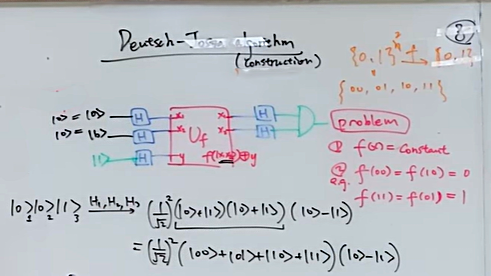 Deutsch-Jozsa Algorithm
(construction)
8
{0,1}² f→ {0,1}
{00, 01, 10, 11}
|0> = |0> H x₁ x₁ H
|0> = |0> H x₂ U_f x₂ H
|1> H y f(x₁x₂)⊕y
problem
① f(x) = constant
② e.g. f(00) = f(10) = 0
f(11) = f(01) = 1
|0>₁|0>₂|1>₃ H₁,H₂,H₃→ (1/√2)² (|0>+|1>)(|0>+|1>) (|0>-|1>)
= (1/√2)² (|00>+|01>+|10>+|11>) (|0>-|1>)